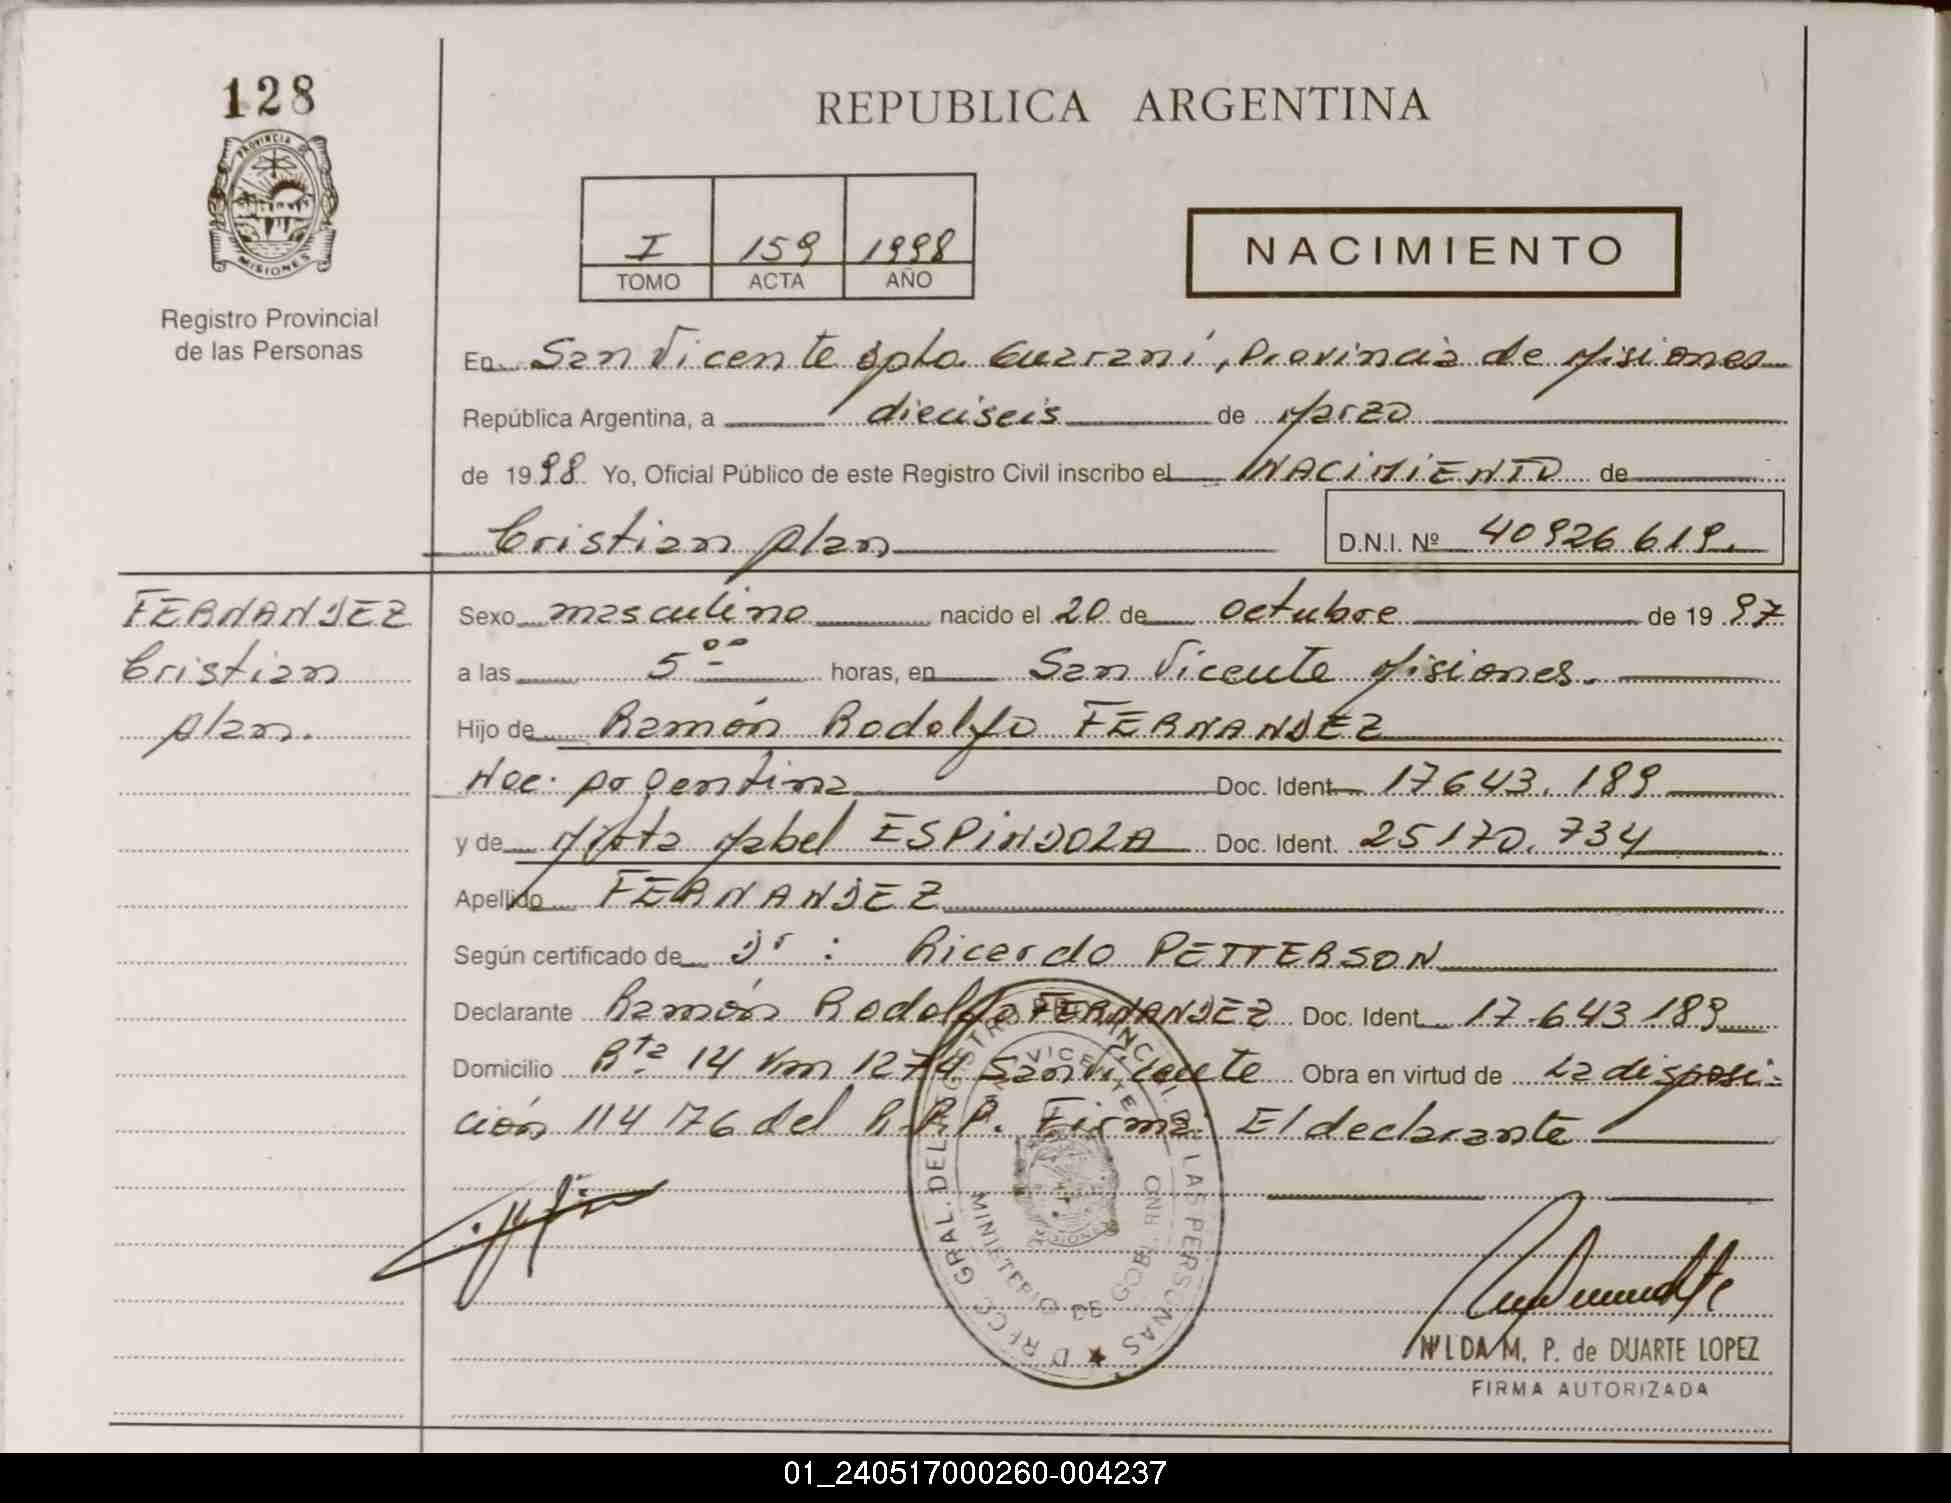 128
PROVINCIA DE
MISIONES
Registro Provincial
de las Personas
REPUBLICA ARGENTINA
I 159 1998
TOMO ACTA AÑO
NACIMIENTO
En San Vicente Dpto. Guaraní, Provincia de Misiones
República Argentina, a dieciseis de Marzo
de 1998 Yo, Oficial Público de este Registro Civil inscribo el NACIMIENTO de
Cristian Alan D.N.I. Nº 40926619.
FERNANDEZ
Cristian
Alan.
Sexo masculino nacido el 20 de octubre de 1997
a las 5 ºº horas, en San Vicente Misiones.
Hijo de Ramón Rodolfo FERNANDEZ
Nac. Argentina Doc. Ident 17643.189
y de Mabel ESPINDOLA Doc. Ident. 25170.734
Apellido FERNANDEZ
Según certificado de Dr : Ricardo PETTERSON
Declarante Ramón Rodolfo FERNANDEZ Doc. Ident 17.643.189
Domicilio Rta. 14 Km 1274 San Vicente Obra en virtud de La disposi-
ción 114/76 del R.P.P. Firma El declarante
DIRECC. GRAL. DEL REGISTRO PROVINCIAL DE LAS PERSONAS
SAN VICENTE
MINISTERIO DE GOBIERNO
MISIONES
NILDA M. P. de DUARTE LOPEZ
FIRMA AUTORIZADA
01_240517000260-004237